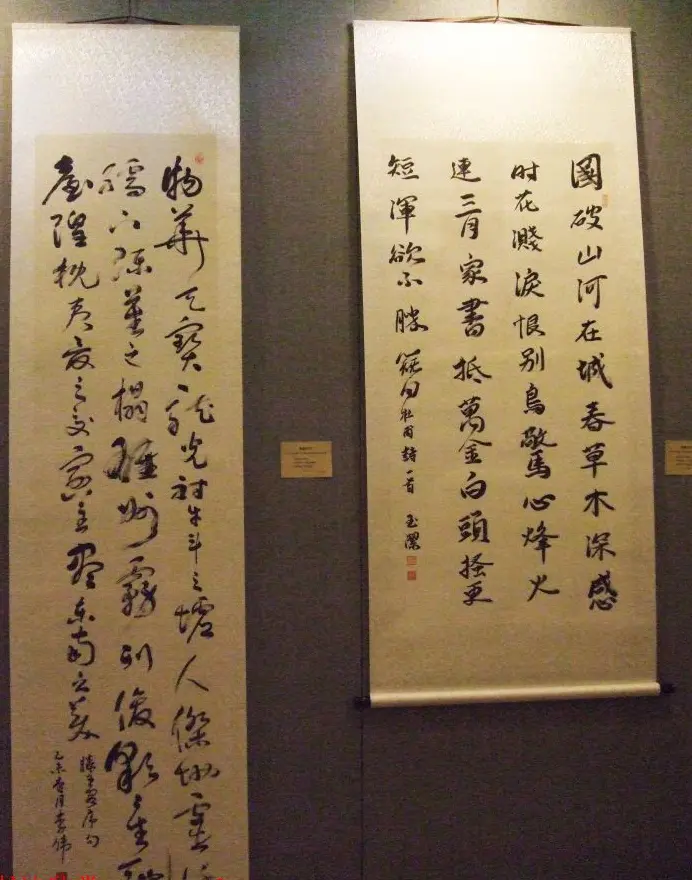 國破山河在城春草木深感
时花濺淚恨别鳥驚心烽火
連三月家書抵萬金白頭搔更
短渾欲不勝簪 杜甫詩一首 玉潔
物華天寶龍光射牛斗之墟人傑地靈徐
孺下陳蕃之榻雄州霧列俊彩星馳
臺隍枕夷夏之交賓主盡東南之美
滕王閣序句
乙未春月李偉